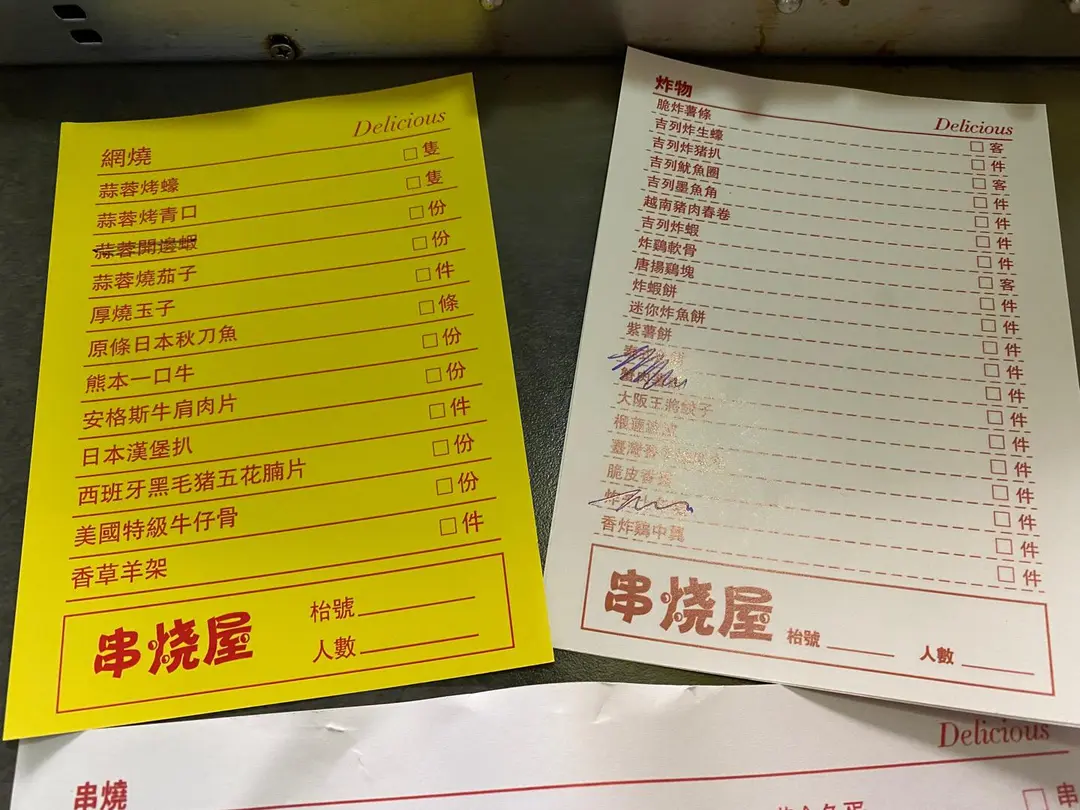 網燒 Delicious
蒜蓉烤蠔 □隻
蒜蓉烤青口 □隻
蒜蓉開邊蝦 □份
蒜蓉燒茄子 □份
厚燒玉子 □件
原條日本秋刀魚 □條
熊本一口牛 □份
安格斯牛肩肉片 □份
日本漢堡扒 □件
西班牙黑毛豬五花腩片 □份
美國特級牛仔骨 □份
香草羊架 □件
串烧屋 枱號
人數
炸物 Delicious
脆炸薯條 □客
吉列炸生蠔 □件
吉列炸豬扒 □客
吉列魷魚圈 □件
吉列墨魚角 □件
越南豬肉春卷 □件
吉列炸蝦 □件
炸鷄軟骨 □客
唐揚鷄塊 □件
炸蝦餅 □件
迷你炸魚餅 □件
紫薯餅 □件
□件
□件
大阪王將餃子 □件
□件
臺灣 □件
脆皮 □件
炸 □件
香炸鷄中翼 □件
串烧屋 枱號 人數
Delicious
串燒 □串